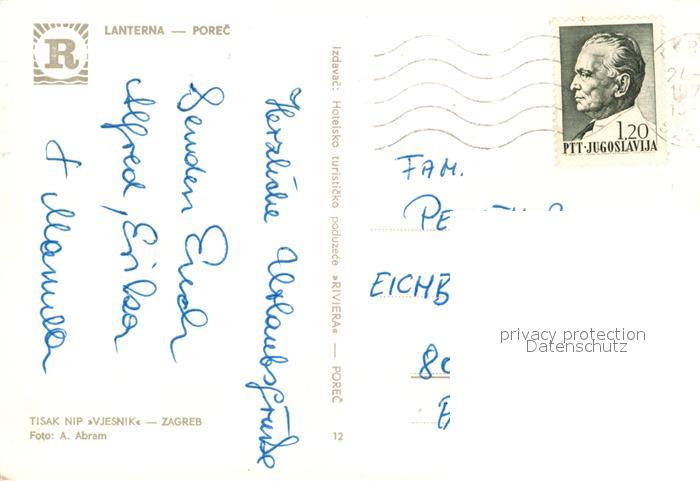 R
LANTERNA — POREČ
Herzliche Urlaubsgrüße
Senden Euch
Alfred, Erika
+ Manuela
TISAK NIP »VJESNIK« — ZAGREB
Foto: A. Abram
Izdavač: Hotelsko turističko poduzeće »RIVIERA« — POREČ
12
1.20
PTT·JUGOSLAVIJA
FAM.
PE
EICHB
privacy protection
Datenschutz